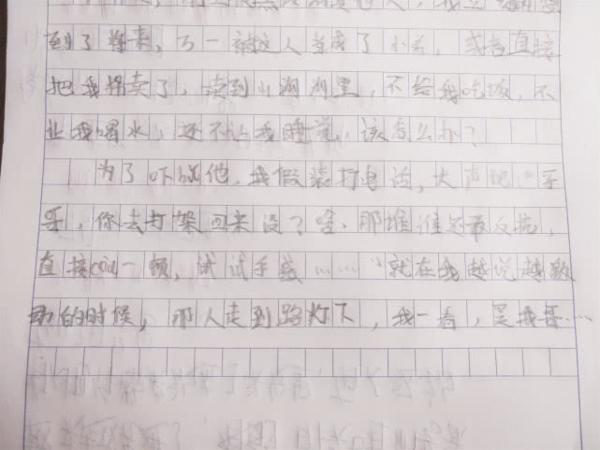 到了将来，万一被这人当成了小弟，或者直接
把我拐卖了，卖到小沟沟里，不给我吃饭，不
让我喝水，还不让我睡觉，该怎么办？
为了吓唬他，我假装打电话，大声吧“哥
哥，你去打架回来没？啥，那堆谁还敢反抗，
直接一顿，试试手感……”就在我越说越激
动的时候，那人走到路灯下，我一看，是我哥……